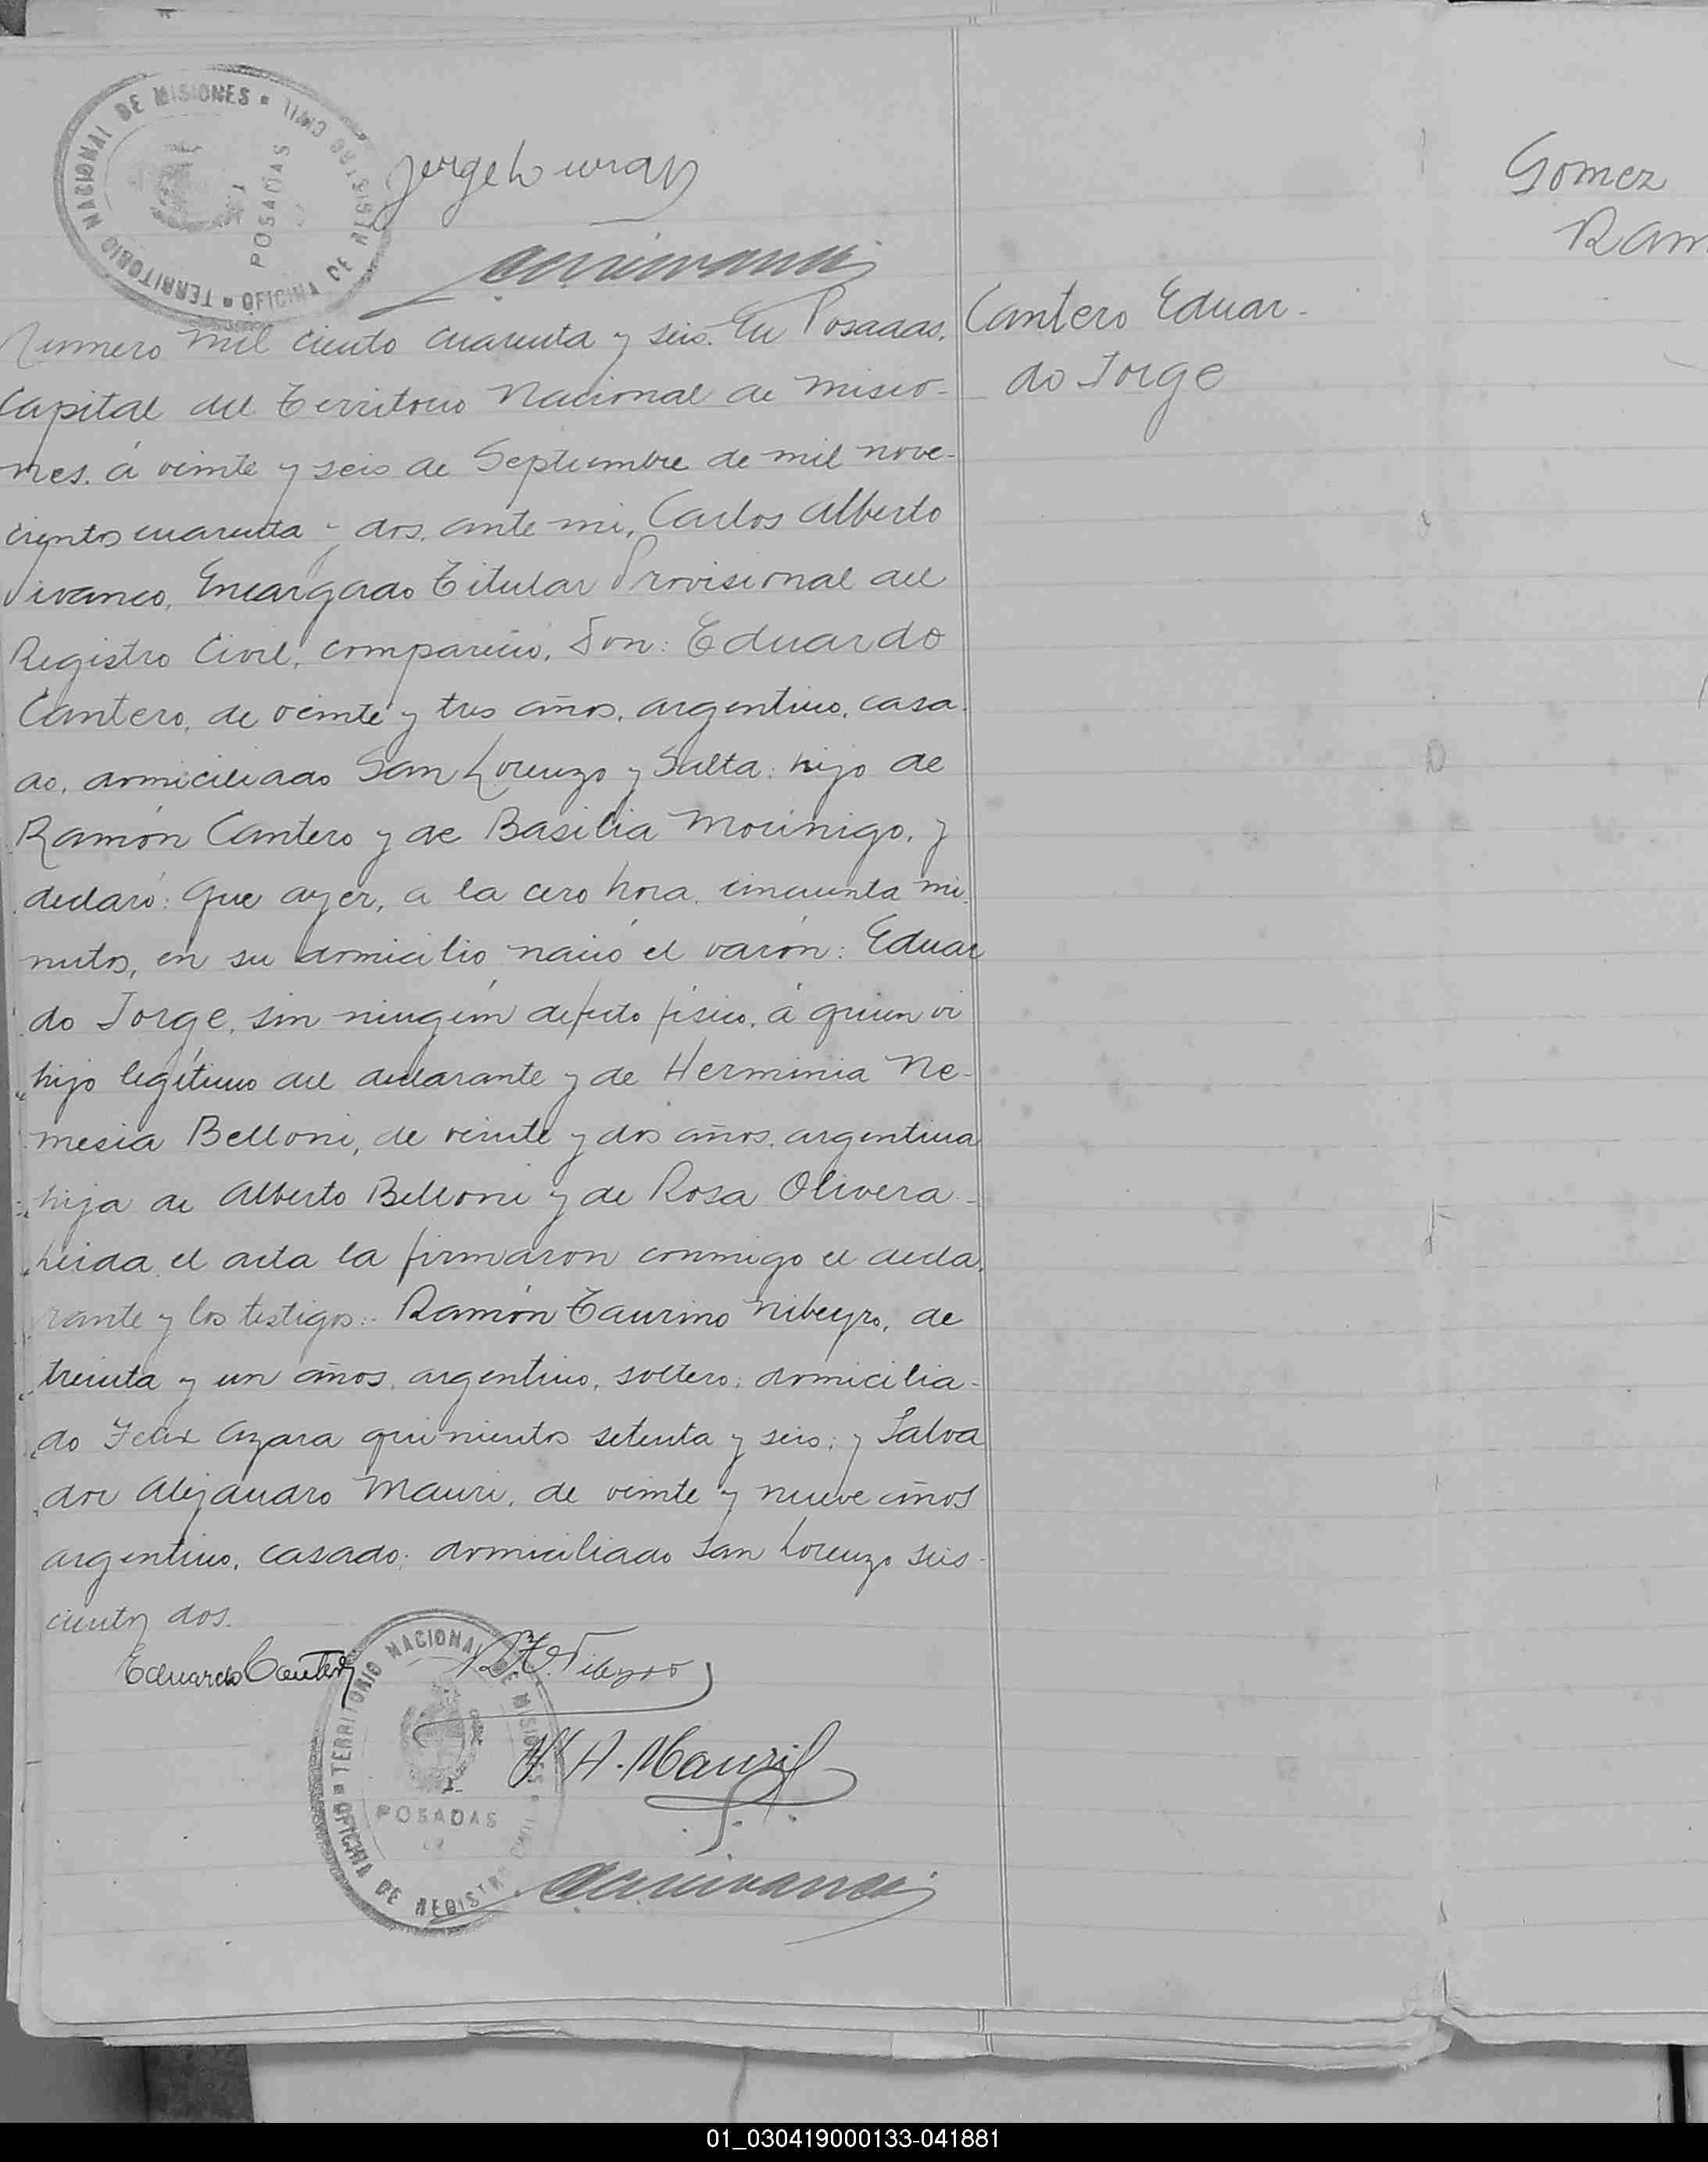 TERRITORIO NACIONAL DE MISIONES
OFICINA DE REGISTRO CIVIL
POSADAS
Gomez
Ram
Cantero Eduar-
do Jorge
Numero mil ciento cuarenta y seis. En Posadas,
Capital del Territorio Nacional de Misio-
nes, á veinte y seis de Septiembre de mil nove-
cientos cuarenta y dos, ante mi, Carlos Alberto
Vivanco, Encargado Titular Provisional del
Registro Civil, compareció, Don: Eduardo
Cantero, de veinte y tres años, argentino, casa-
do, domiciliado San Lorenzo y Salta; hijo de
Ramón Cantero y de Basilia Morinigo, y
declaró: Que ayer, a la cero hora cincuenta mi-
nutos, en su domicilio nació el varón: Eduar
do Jorge, sin ningún defecto físico, á quien vi
hijo legítimo del declarante y de Herminia Ne-
mesia Belloni, de veinte y dos años, argentina
hija de Alberto Belloni y de Rosa Olivera-
Leida el acta la firmaron conmigo el decla-
rante y los testigos: Ramón Taurino Nibeyro, de
treinta y un años, argentino, soltero; domicilia-
do Felix Azara quinientos setenta y seis; y Salva
dor Alejandro Mauri, de veinte y nueve años
argentino, casado; domiciliado San Lorenzo seis-
cientos dos.
Eduardo Cantero
A. Mauri
TERRITORIO NACIONAL DE MISIONES
OFICINA DE REGISTRO CIVIL
POSADAS
01_030419000133-041881